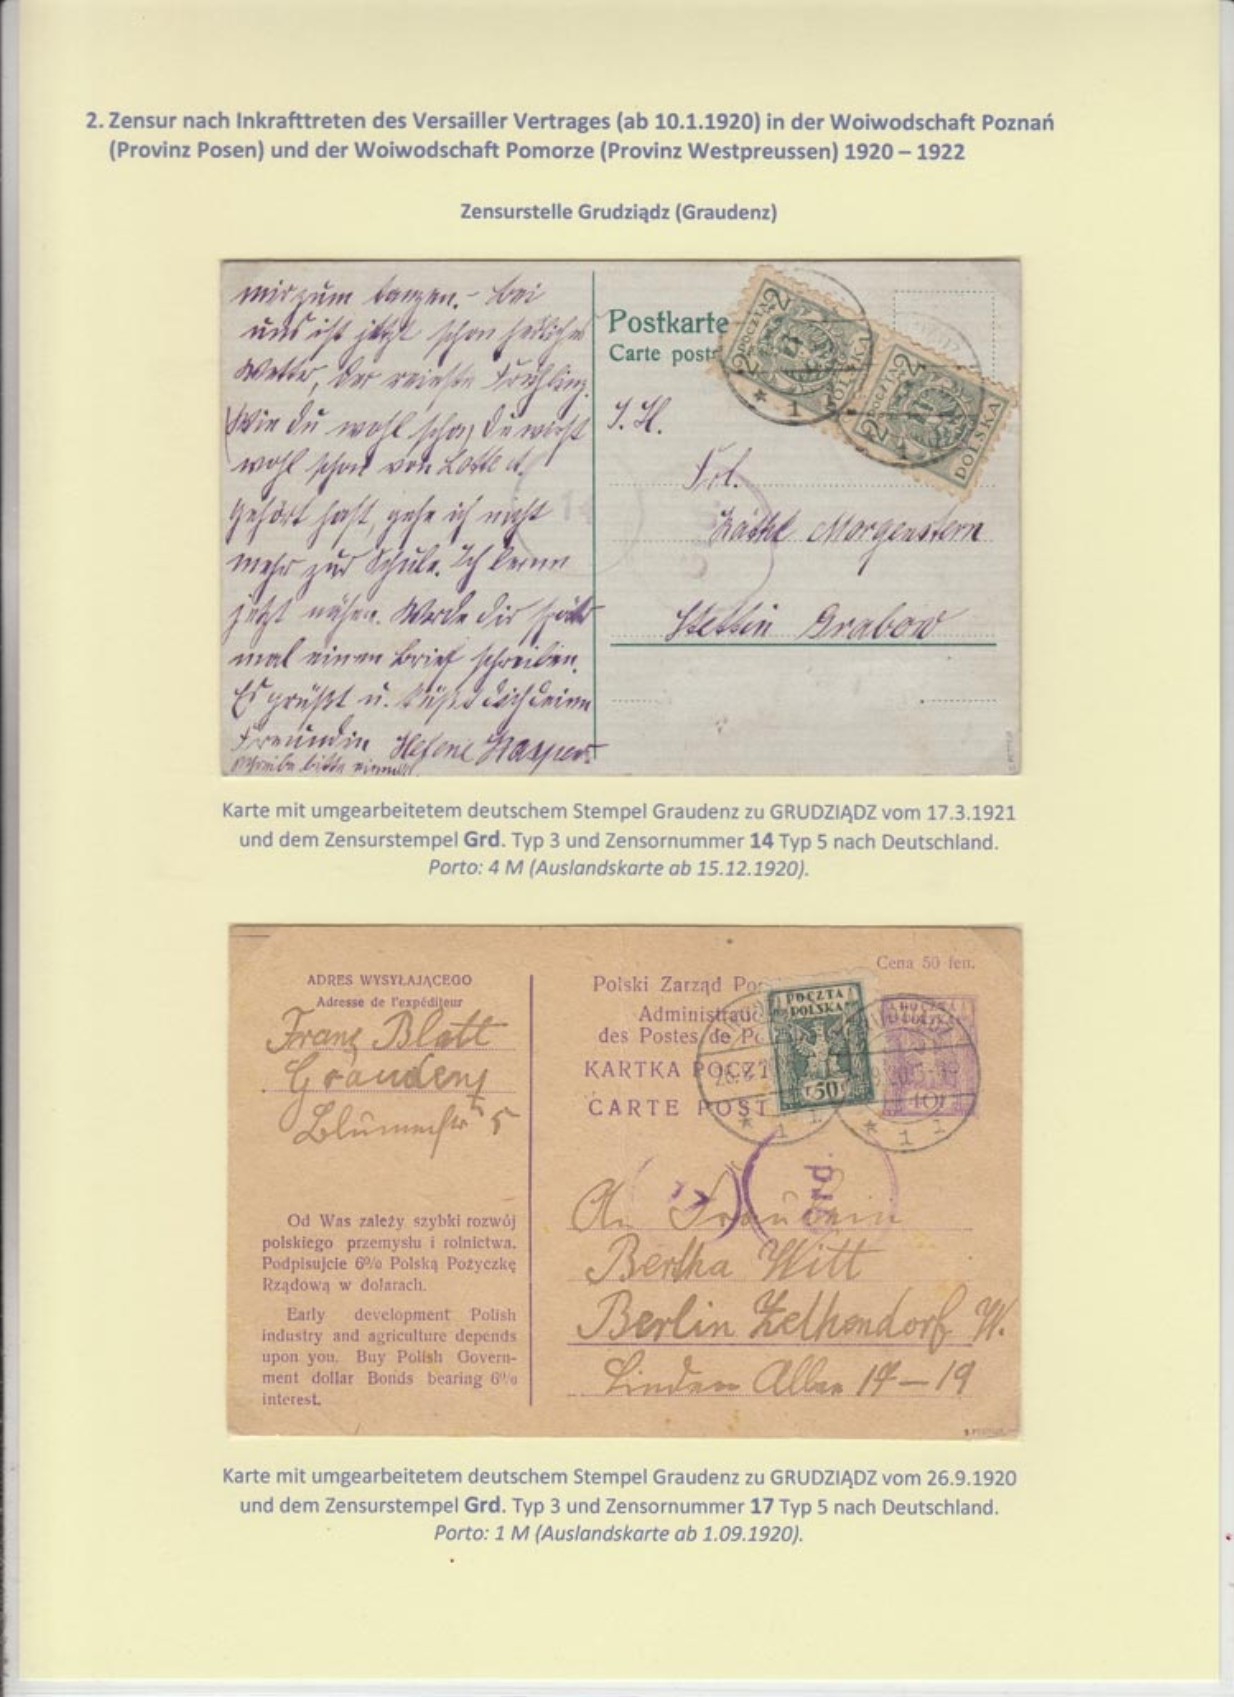 2. Zensur nach Inkrafttreten des Versailler Vertrages (ab 10.1.1920) in der Woiwodschaft Poznań
(Provinz Posen) und der Woiwodschaft Pomorze (Provinz Westpreussen) 1920 – 1922
Zensurstelle Grudziądz (Graudenz)
mir zum tanzen. - Bei
uns ist jetzt schon herrliches
Wetter, der reinste Frühling.
Wie du wohl schon, du wirst
wohl schon von Lotte
gehört hast, gehe ich nicht
mehr zur Schule. Ich lerne
jetzt nähen. Werde dir später
mal einen Brief schreiben.
Es grüßt u. küßt dich deine
Freundin Helene
Schreibe bitte einmal.
Postkarte
Carte post
POCZTA
POLSKA
2 2
POCZTA
POLSKA
2 2
* 1
Frl.
Käthe Morgenstern
Stettin Grabow
14
Karte mit umgearbeitetem deutschem Stempel Graudenz zu GRUDZIĄDZ vom 17.3.1921
und dem Zensurstempel Grd. Typ 3 und Zensornummer 14 Typ 5 nach Deutschland.
Porto: 4 M (Auslandskarte ab 15.12.1920).
Cena 50 fen.
ADRES WYSYŁAJĄCEGO
Adresse de l'expéditeur
Franz Blatt
Graudenz
Blumenstr 5
Od Was zależy szybki rozwój
polskiego przemysłu i rolnictwa.
Podpisujcie 6% Polską Pożyczkę
Rządową w dolarach.
Early development Polish
industry and agriculture depends
upon you. Buy Polish Govern-
ment dollar Bonds bearing 6%
interest.
Polski Zarząd Po
Administrati
des Postes de Po
KARTKA POCZT
CARTE POST
POCZTA
POLSKA
50
* 1
* 1
Grd.
An Fräulein
Bertha Witt
Berlin Zelhendorf W.
Linden Allee 17-19
Karte mit umgearbeitetem deutschem Stempel Graudenz zu GRUDZIĄDZ vom 26.9.1920
und dem Zensurstempel Grd. Typ 3 und Zensornummer 17 Typ 5 nach Deutschland.
Porto: 1 M (Auslandskarte ab 1.09.1920).